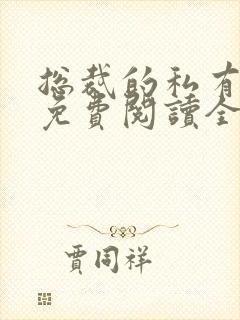 总裁的私有
免費閱讀全
賈同祥